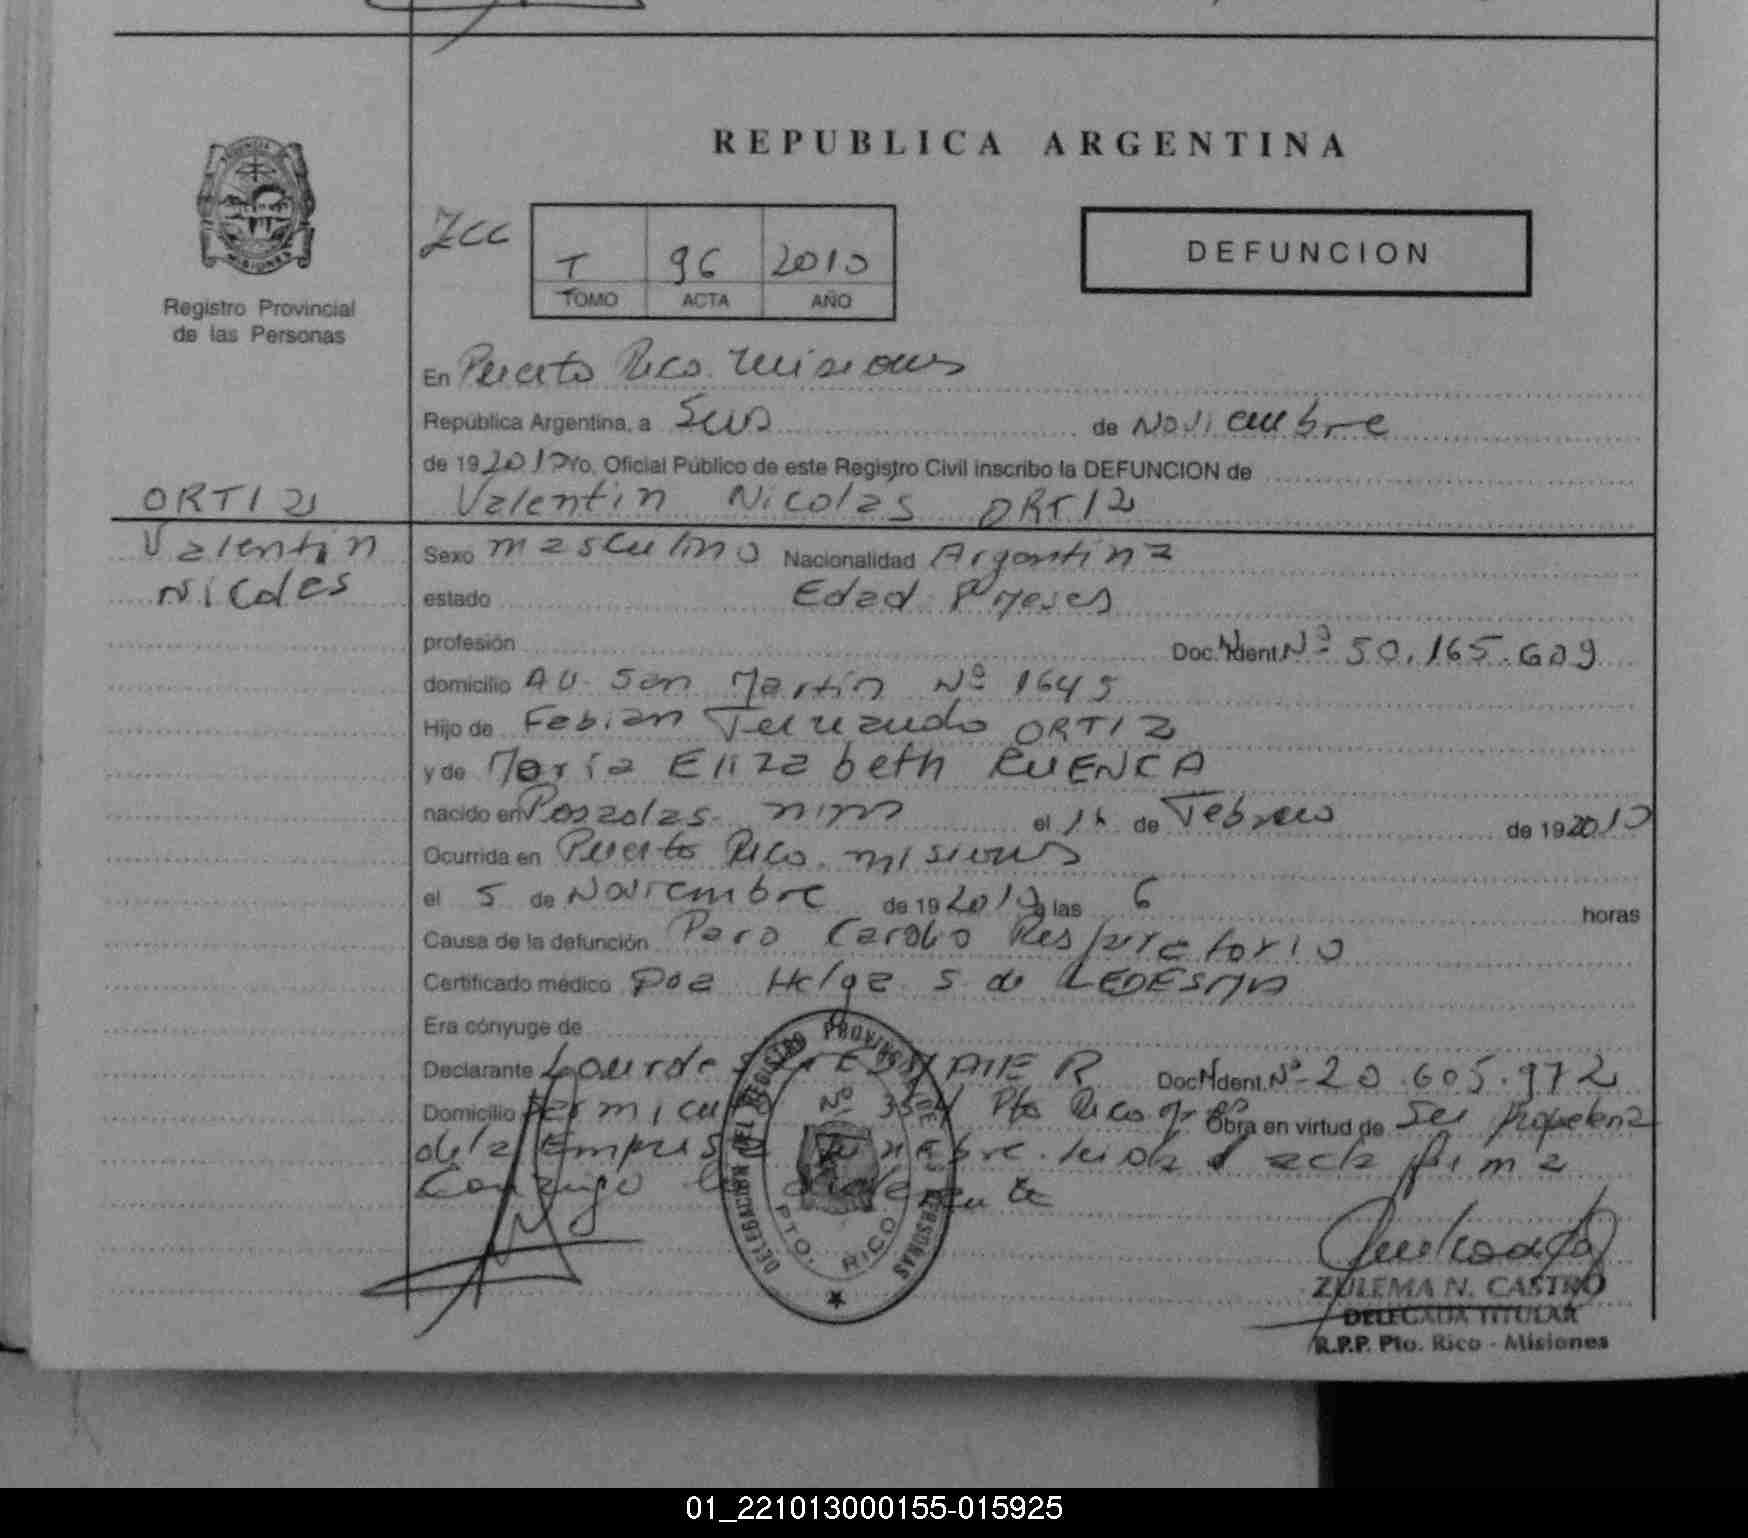 REPUBLICA ARGENTINA
DEFUNCION
T 96 2010
TOMO ACTA AÑO
Registro Provincial
de las Personas
En Puerto Rico Misiones
República Argentina, a Seis de Noviembre
de 19 2010 Yo, Oficial Público de este Registro Civil inscribo la DEFUNCION de
Valentin Nicolas ORTIZ
ORTIZ
Valentin
Nicolas
Sexo masculino Nacionalidad Argentina
estado Edad 8 Meses
profesión Doc. Ident. Nº 50.165.609
domicilio AV. San Martin Nº 1645
Hijo de Fabian Fernando ORTIZ
y de Maria Elizabeth CUENCA
nacido en Posadas mnes el de Febrero de 19 2010
Ocurrida en Puerto Rico. misiones
el 5 de Noviembre de 19 2010 a las 6 horas
Causa de la defunción Paro Cardio Respiratorio
Certificado médico Dra Helga S de LEDESMA
Era cónyuge de
Declarante Lourdes Doc. Ident. Nº 20.605.972
Domicilio Pto Rico Obra en virtud de Ser Propietaria
de la Empresa Funebre. leida el acta firma
Conmigo el declarante
DELEGACION DEL REGISTRO PROVINCIAL DE LAS PERSONAS
PTO. RICO
ZULEMA N. CASTRO
DELEGADA TITULAR
R.P.P. Pto. Rico - Misiones
01_221013000155-015925